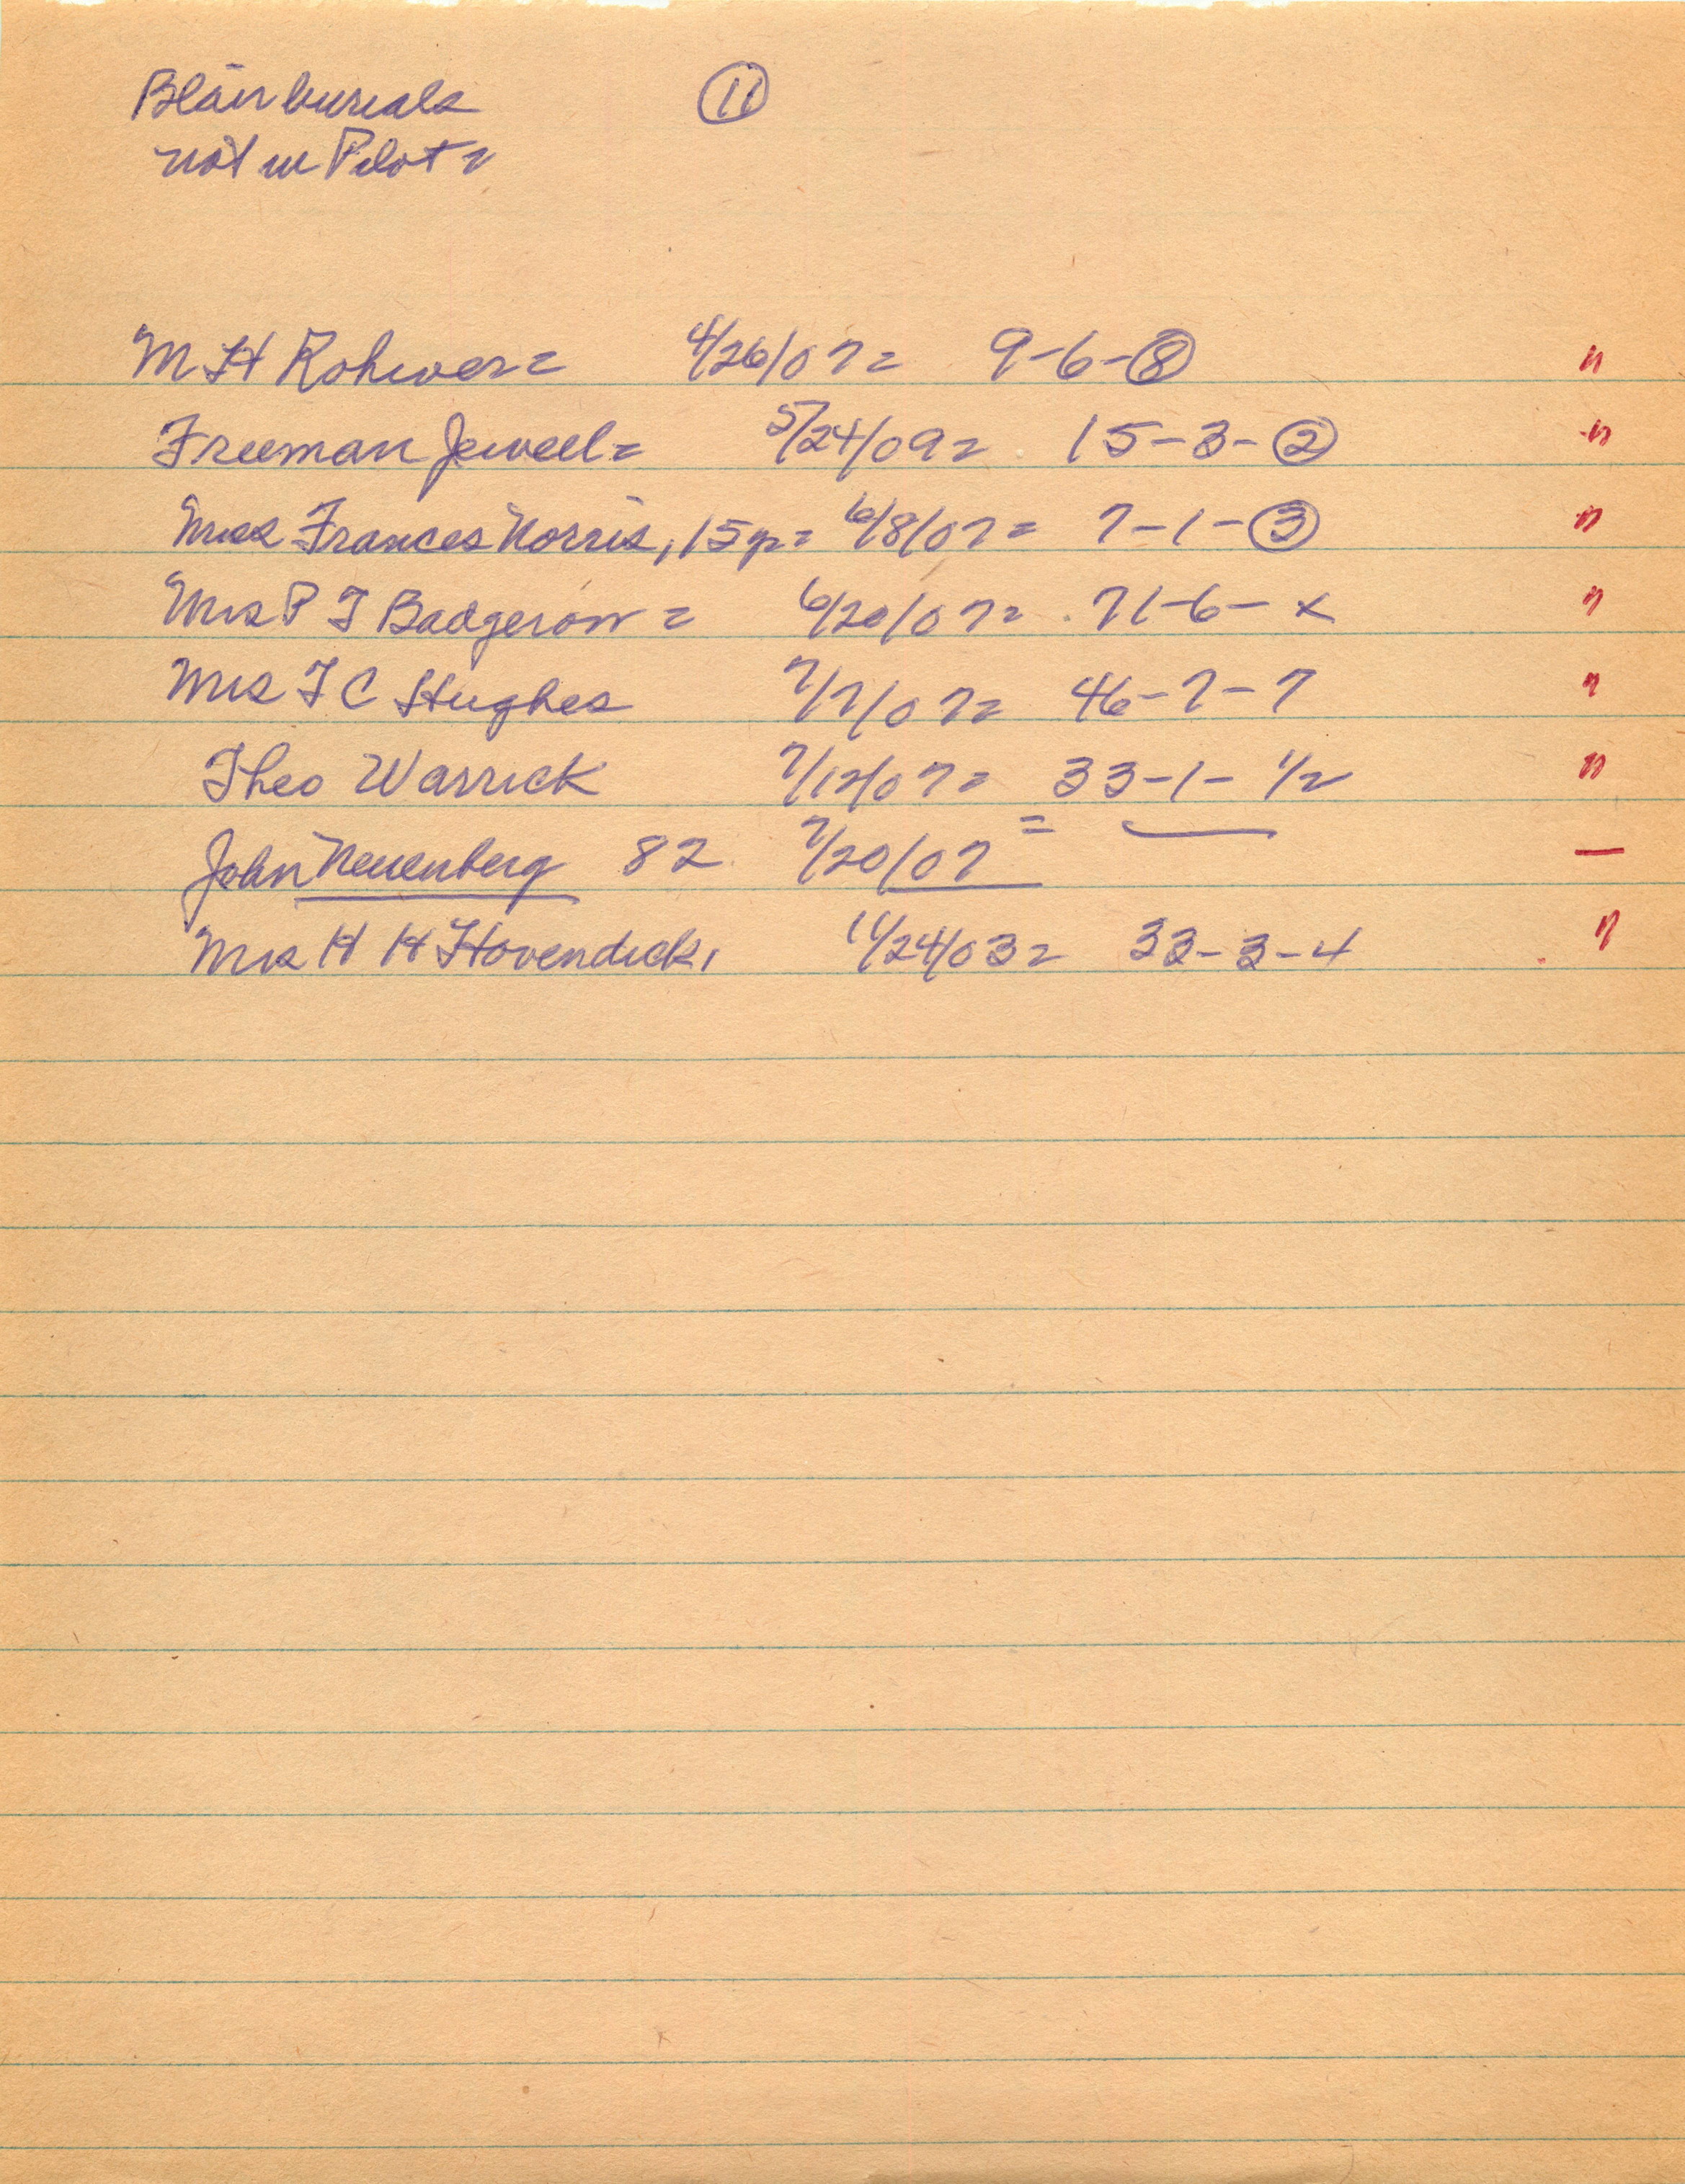 Blair burials (11)
not in Pilot =
M H Rohwer = 4/26/07 = 9-6-(8) n
Freeman Jewell = 5/24/09 = 15-3-(2) n
Miss Frances Norris, 15 yr = 6/8/07 = 7-1-(3) n
Mrs P T Badgerow = 6/20/07 = 71-6-x n
Mrs T C Hughes 7/7/07 = 46-7-7 n
Theo Warrick 7/12/07 = 33-1-1/2 n
John Neuenberg 82 7/20/07 = — —
Mrs H H Hovendick, 11/24/03 = 33-3-4 n